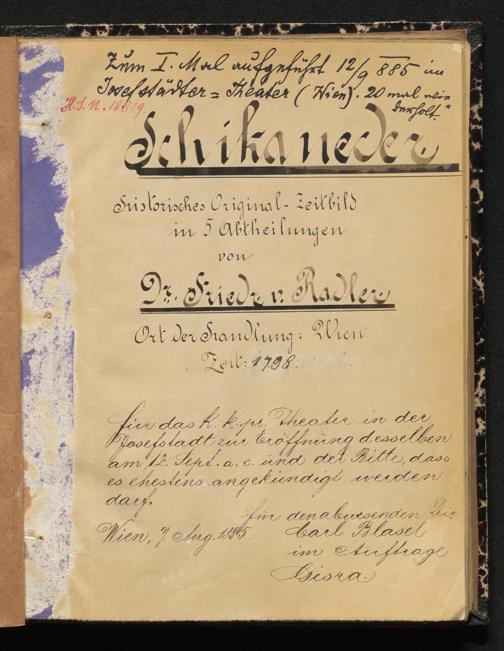 Zum I. Mal aufgeführt 12/9 885 im
Josefstädter = Theater (Wien). 20 mal wie
derholt."
H.I.N. 18819
Schikaneder
Historisches Original-Zeitbild
in 5 Abtheilungen
von
Dr. Friedr. v. Radler
Ort der Handlung: Wien.
Zeit: 1798.
für das k. k. pr. Theater in der
Josefstadt zur Eröffnung desselben
am 12. Sept. a. c. und der Bitte, dass
es ehestens angekündigt werden
darf.
für den abwesenden Dir.
Wien, 7. Aug. 1885.
Carl Blasel
im Auftrage